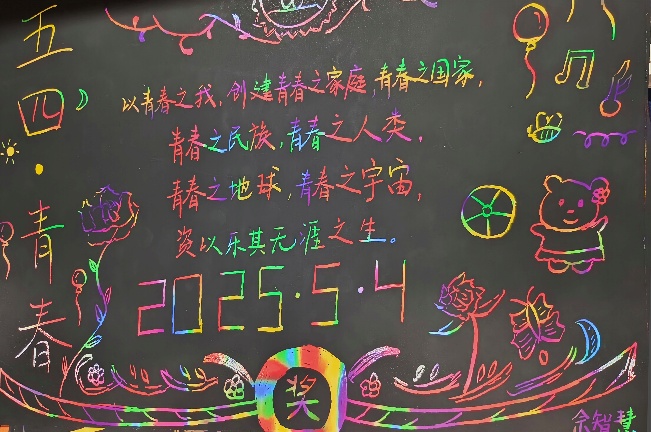 五四·青春
以青春之我，创建青春之家庭，青春之国家，
青春之民族，青春之人类，
青春之地球，青春之宇宙，
资以乐其无涯之生。
2025·5·4
奖
余智慧